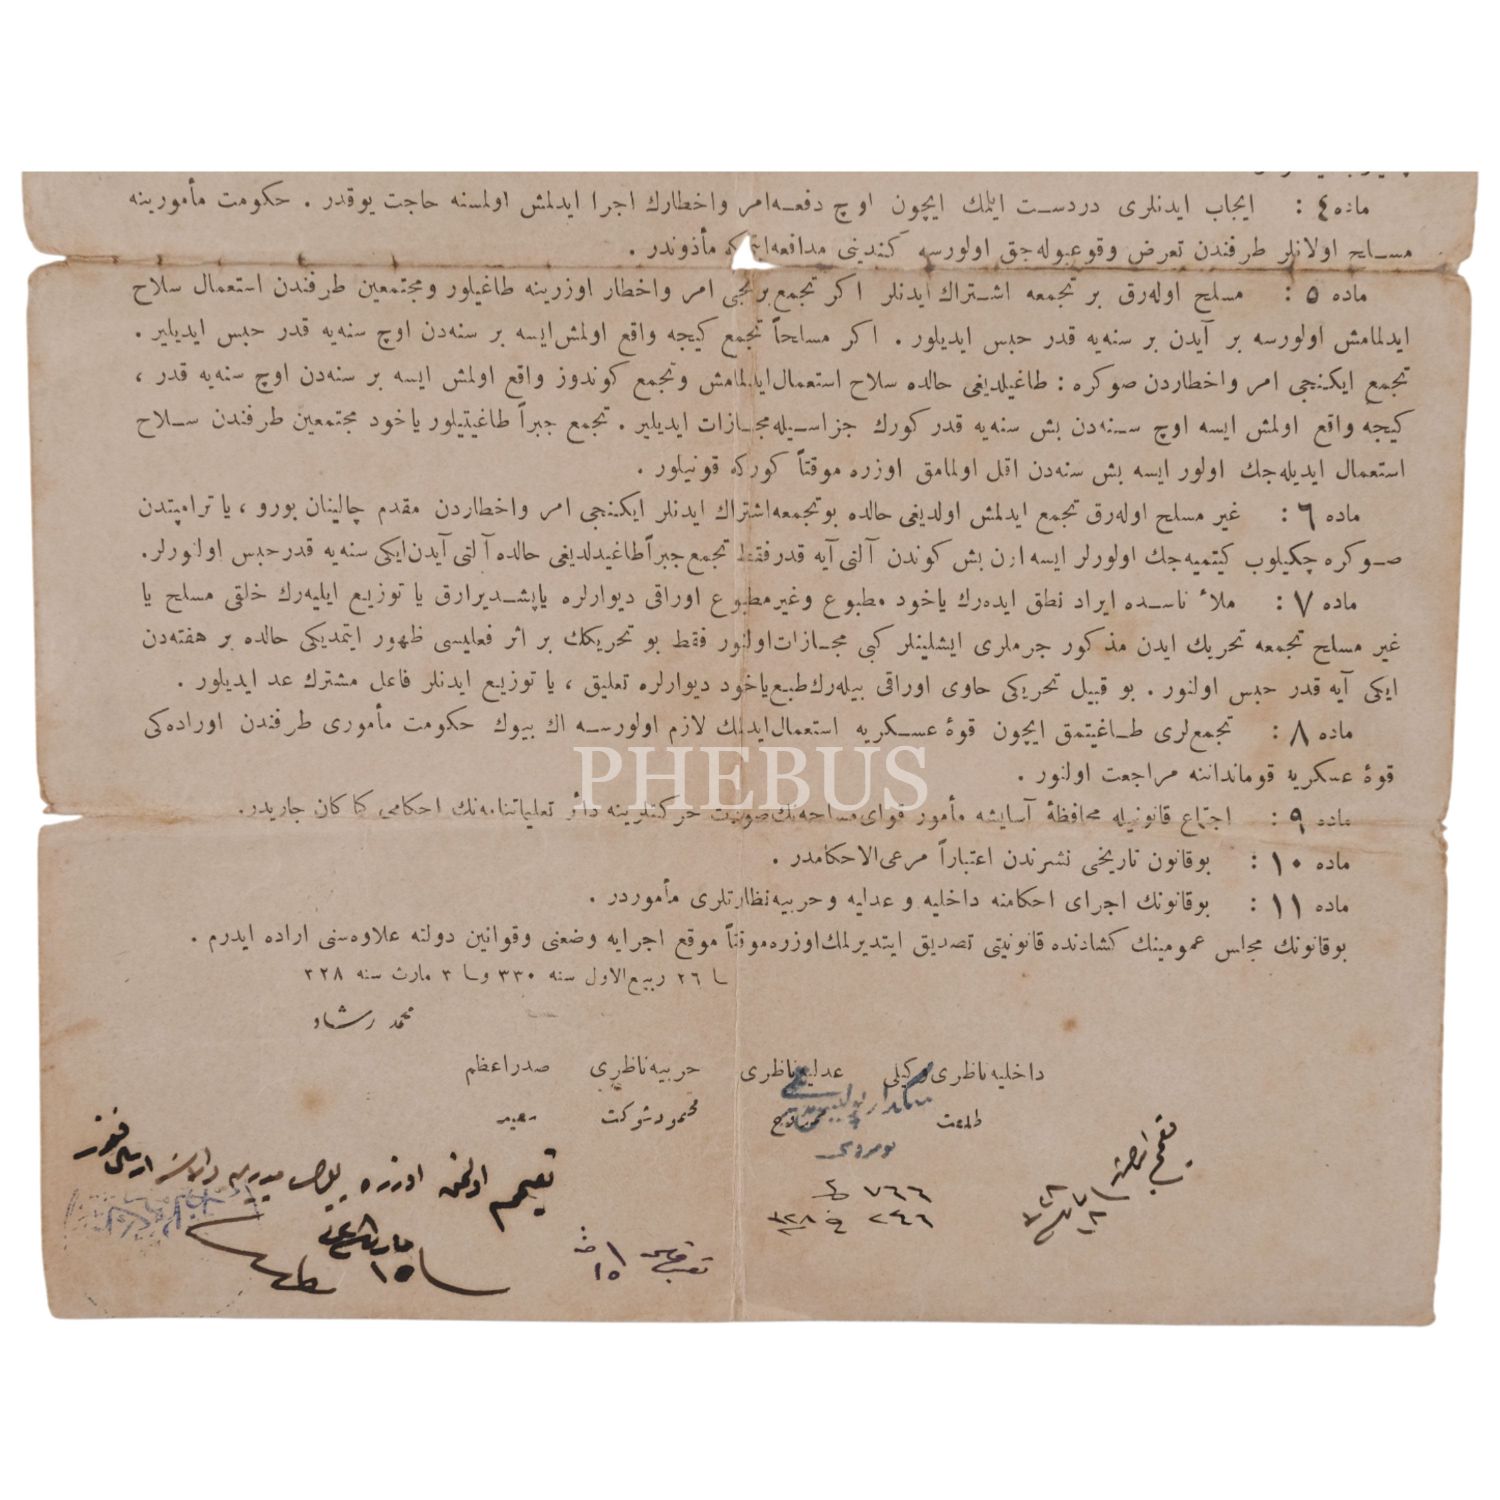 ماده ٤ : ايجاب ايدنلرى دردست ايتمك ايچون اوچ دفعه امر واخطارك اجرا ايدلمش اولمسنه حاجت يوقدر . حكومت مأمورينه
مسلح اولانلر طرفندن تعرض وقوعبوله جق اولورسه كندينى مدافعه ايتمكه مأذوندر .
ماده ٥ : مسلح اوله رق بر تجمعه اشتراك ايدنلر اكر تجمع برنجى امر واخطار اوزرينه طاغيلور ومجتمعين طرفندن استعمال سلاح
ايدلمامش اولورسه بر آيدن بر سنه يه قدر حبس ايديلور . اكر مسلحاً تجمع كيجه واقع اولمش ايسه بر سنه دن اوچ سنه يه قدر حبس ايديلير .
تجمع ايكنجى امر واخطاردن صوكره : طاغيلديغى حالده سلاح استعمال ايدلمامش وتجمع كوندوز واقع اولمش ايسه بر سنه دن اوچ سنه يه قدر ،
كيجه واقع اولمش ايسه اوچ سنه دن بش سنه يه قدر كورك جزاسيله مجازات ايديلير . تجمع جبراً طاغيتيلور ياخود مجتمعين طرفندن سلاح
استعمال ايديله جك اولور ايسه بش سنه دن اقل اولمامق اوزره موقتاً كوركه قونيلور .
ماده ٦ : غير مسلح اوله رق تجمع ايدلمش اولديغى حالده بو تجمعه اشتراك ايدنلر ايكنجى امر واخطاردن مقدم چالينان بورو ، يا ترامپتدن
صوكره چكيلوب كيتميه جك اولورلر ايسه اون بش كوندن آلتى آيه قدر فقط تجمع جبراً طاغيدلديغى حالده آلتى آيدن ايكى سنه يه قدر حبس اولنورلر.
ماده ٧ : ملأ ناسده ايراد نطق ايده رك ياخود مطبوع وغير مطبوع اوراقى ديوارلره ياپشديرارق يا توزيع ايليه رك خلقى مسلح يا
غير مسلح تجمعه تحريك ايدن مذكور جرملرى ايشلينلر كبى مجازات اولنور فقط بو تحريكك بر اثر فعليسى ظهور ايتمديكى حالده بر هفته دن
ايكى آيه قدر حبس اولنور . بو قبيل تحريكى حاوى اوراقى بيله رك طبع ياخود ديوارلره تعليق ، يا توزيع ايدنلر فاعل مشترك عد ايديلور .
ماده ٨ : تجمعلرى طاغيتمق ايچون قوۀ عسكريه استعمال ايدلمك لازم اولورسه اك بيوك حكومت مأمورى طرفندن اوراده كى
قوۀ عسكريه قومانداننه مراجعت اولنور .
PHEBUS
ماده ٩ : اجتماع قانونيله محافظۀ آسايشه مأمور قواى مسلحه نك صورت حركتلرينه دائر تعليماتنامه نك احكامى كماكان جاريدر.
ماده ١٠ : بوقانون تاريخى نشرندن اعتباراً مرعى الاحكامدر .
ماده ١١ : بوقانونك اجراى احكامنه داخليه و عدليه و حربيه نظارتلرى مأموردر .
بوقانونك مجلس عمومينك كشادنده قانونيتى تصديق ايتديرلمك اوزره موقتاً موقع اجرايه وضعنى وقوانين دولته علاوه سنى اراده ايدرم .
٢٦ ربيع الاول سنه ٣٣٠ و ٣ مارت سنه ٣٢٨
محمد رشاد
داخليه ناظرى وكيلى عدليه ناظرى حربيه ناظرى صدراعظم
طلعت محمود شوكت سعيد
تعميم اولنمق اوزره
٧٦٦
٢٤٦ ٣٢٨
١٥